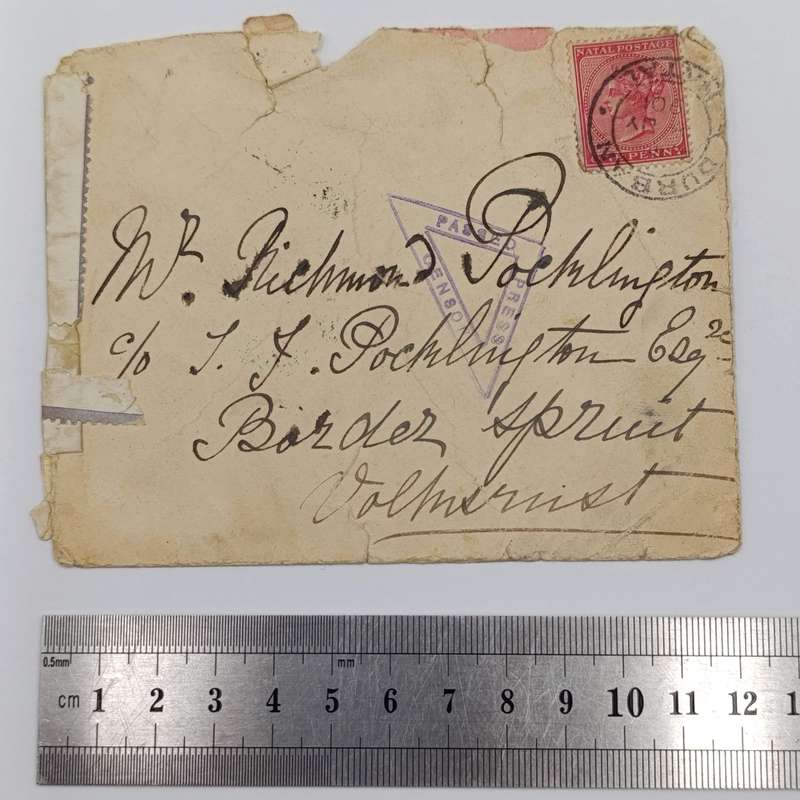 NATAL POSTAGE
PENNY
DURBAN NATAL
PASSED
PRESS
CENSO
Mr. Richmond Pocklington
c/o J. J. Pocklington Esqre
Border Spruit
Volksrust
0.5mm mm
cm 1 2 3 4 5 6 7 8 9 10 11 12 1